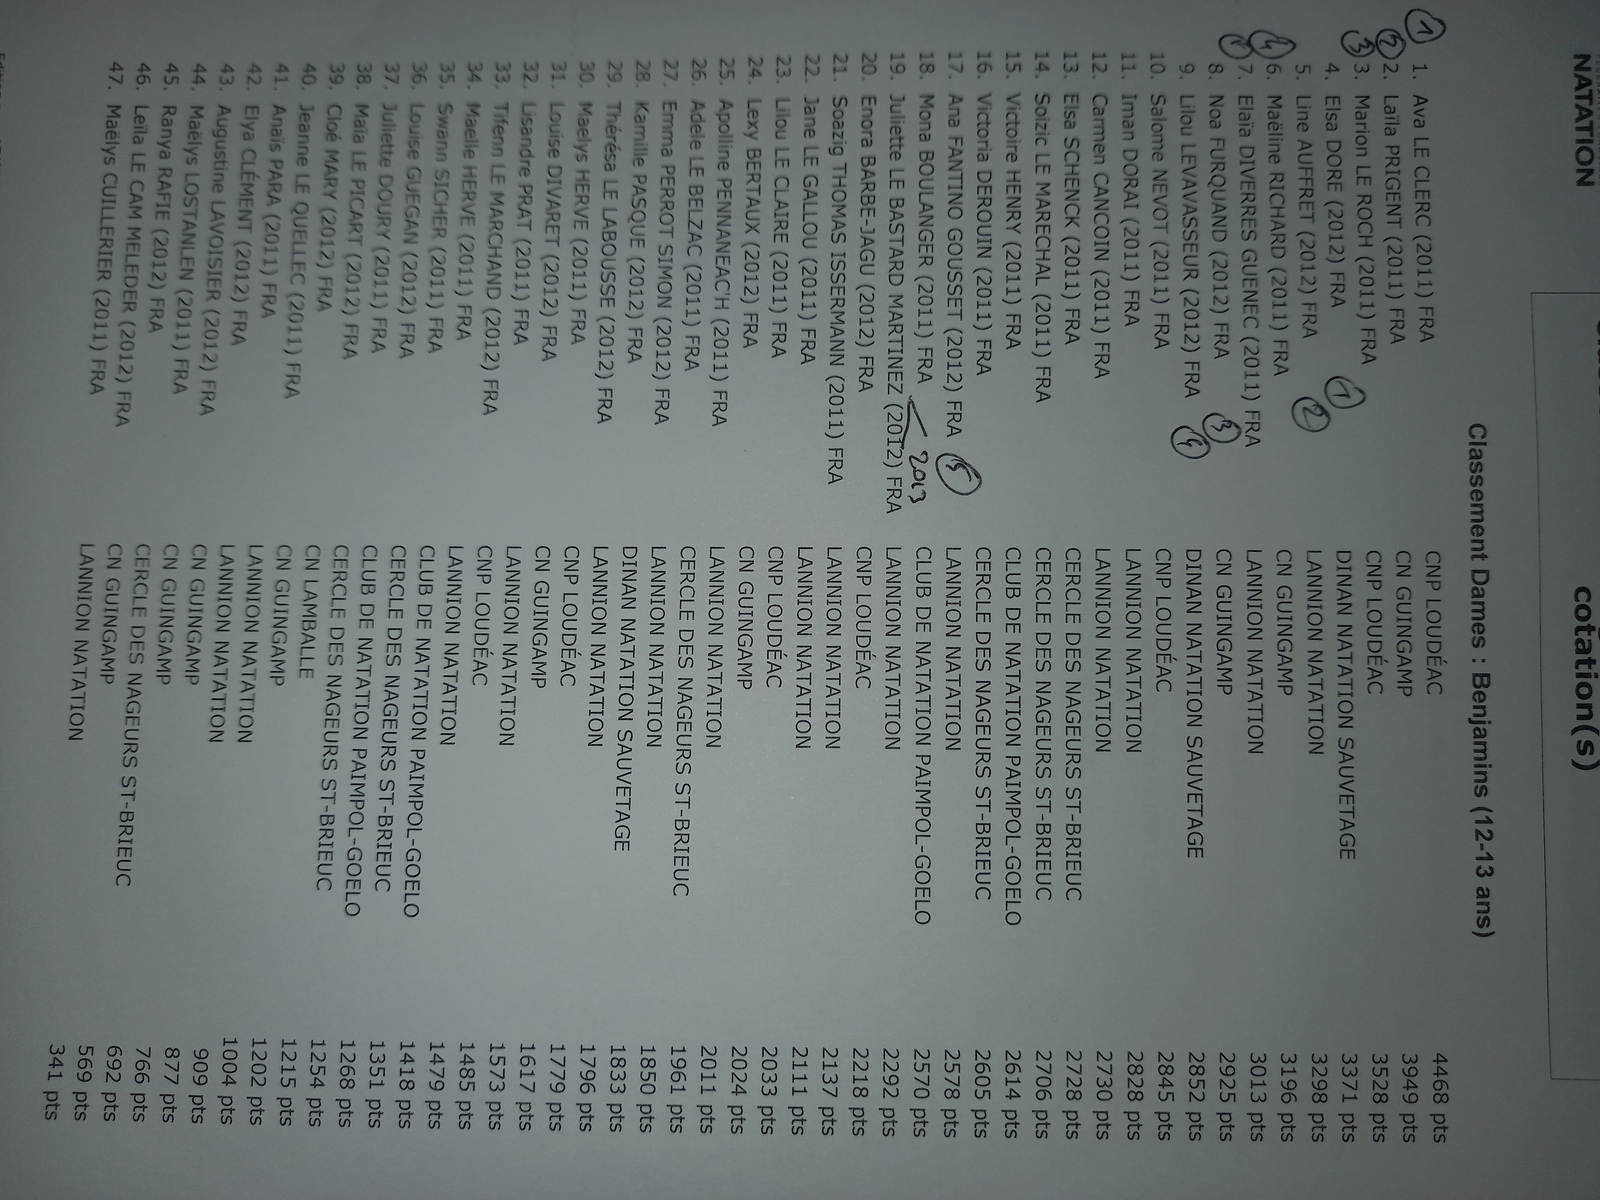 NATATION
cotation(s)
Classement Dames : Benjamins (12-13 ans)
① 1. Ava LE CLERC (2011) FRA CNP LOUDÉAC 4468 pts
② 2. Laïla PRIGENT (2011) FRA CN GUINGAMP 3949 pts
③ 3. Marion LE ROCH (2011) FRA CNP LOUDÉAC 3528 pts
4. Elsa DORE (2012) FRA ① DINAN NATATION SAUVETAGE 3371 pts
5. Line AUFFRET (2012) FRA ② LANNION NATATION 3298 pts
④ 6. Maëline RICHARD (2011) FRA CN GUINGAMP 3196 pts
7. Elaïa DIVERRES GUENEC (2011) FRA LANNION NATATION 3013 pts
8. Noa FURQUAND (2012) FRA ③ CN GUINGAMP 2925 pts
9. Lilou LEVAVASSEUR (2012) FRA ④ DINAN NATATION SAUVETAGE 2852 pts
10. Salome NEVOT (2011) FRA CNP LOUDÉAC 2845 pts
11. Iman DORAI (2011) FRA LANNION NATATION 2828 pts
12. Carmen CANCOIN (2011) FRA LANNION NATATION 2730 pts
13. Elsa SCHENCK (2011) FRA CERCLE DES NAGEURS ST-BRIEUC 2728 pts
14. Soizic LE MARECHAL (2011) FRA CERCLE DES NAGEURS ST-BRIEUC 2706 pts
15. Victoire HENRY (2011) FRA CLUB DE NATATION PAIMPOL-GOELO 2614 pts
16. Victoria DEROUIN (2011) FRA CERCLE DES NAGEURS ST-BRIEUC 2605 pts
17. Ana FANTINO GOUSSET (2012) FRA ⑤ LANNION NATATION 2578 pts
18. Mona BOULANGER (2011) FRA 2013 CLUB DE NATATION PAIMPOL-GOELO 2570 pts
19. Juliette LE BASTARD MARTINEZ (2012) FRA LANNION NATATION 2292 pts
20. Enora BARBE-JAGU (2012) FRA CNP LOUDÉAC 2218 pts
21. Soazig THOMAS ISSERMANN (2011) FRA LANNION NATATION 2137 pts
22. Jane LE GALLOU (2011) FRA LANNION NATATION 2111 pts
23. Lilou LE CLAIRE (2011) FRA CNP LOUDÉAC 2033 pts
24. Lexy BERTAUX (2012) FRA CN GUINGAMP 2024 pts
25. Apolline PENNANEAC'H (2011) FRA LANNION NATATION 2011 pts
26. Adele LE BELZAC (2011) FRA CERCLE DES NAGEURS ST-BRIEUC 1961 pts
27. Emma PERROT SIMON (2012) FRA LANNION NATATION 1850 pts
28. Kamille PASQUE (2012) FRA DINAN NATATION SAUVETAGE 1833 pts
29. Thérésa LE LABOUSSE (2012) FRA LANNION NATATION 1796 pts
30. Maelys HERVE (2011) FRA CNP LOUDÉAC 1779 pts
31. Louise DIVARET (2012) FRA CN GUINGAMP 1617 pts
32. Lisandre PRAT (2011) FRA LANNION NATATION 1573 pts
33. Tifenn LE MARCHAND (2012) FRA CNP LOUDÉAC 1485 pts
34. Maelle HERVE (2011) FRA LANNION NATATION 1479 pts
35. Swann SICHER (2011) FRA CLUB DE NATATION PAIMPOL-GOELO 1418 pts
36. Louise GUEGAN (2012) FRA CERCLE DES NAGEURS ST-BRIEUC 1351 pts
37. Juliette DOURY (2011) FRA CLUB DE NATATION PAIMPOL-GOELO 1268 pts
38. Maïa LE PICART (2012) FRA CERCLE DES NAGEURS ST-BRIEUC 1254 pts
39. Cloé MARY (2012) FRA CN LAMBALLE 1215 pts
40. Jeanne LE QUELLEC (2011) FRA CN GUINGAMP 1202 pts
41. Anaïs PARA (2011) FRA LANNION NATATION 1004 pts
42. Elya CLÉMENT (2012) FRA LANNION NATATION 909 pts
43. Augustine LAVOISIER (2012) FRA CN GUINGAMP 877 pts
44. Maëlys LOSTANLEN (2011) FRA CN GUINGAMP 766 pts
45. Ranya RAFIE (2012) FRA CERCLE DES NAGEURS ST-BRIEUC 692 pts
46. Leïla LE CAM MELEDER (2012) FRA CN GUINGAMP 569 pts
47. Maëlys CUILLERIER (2011) FRA LANNION NATATION 341 pts